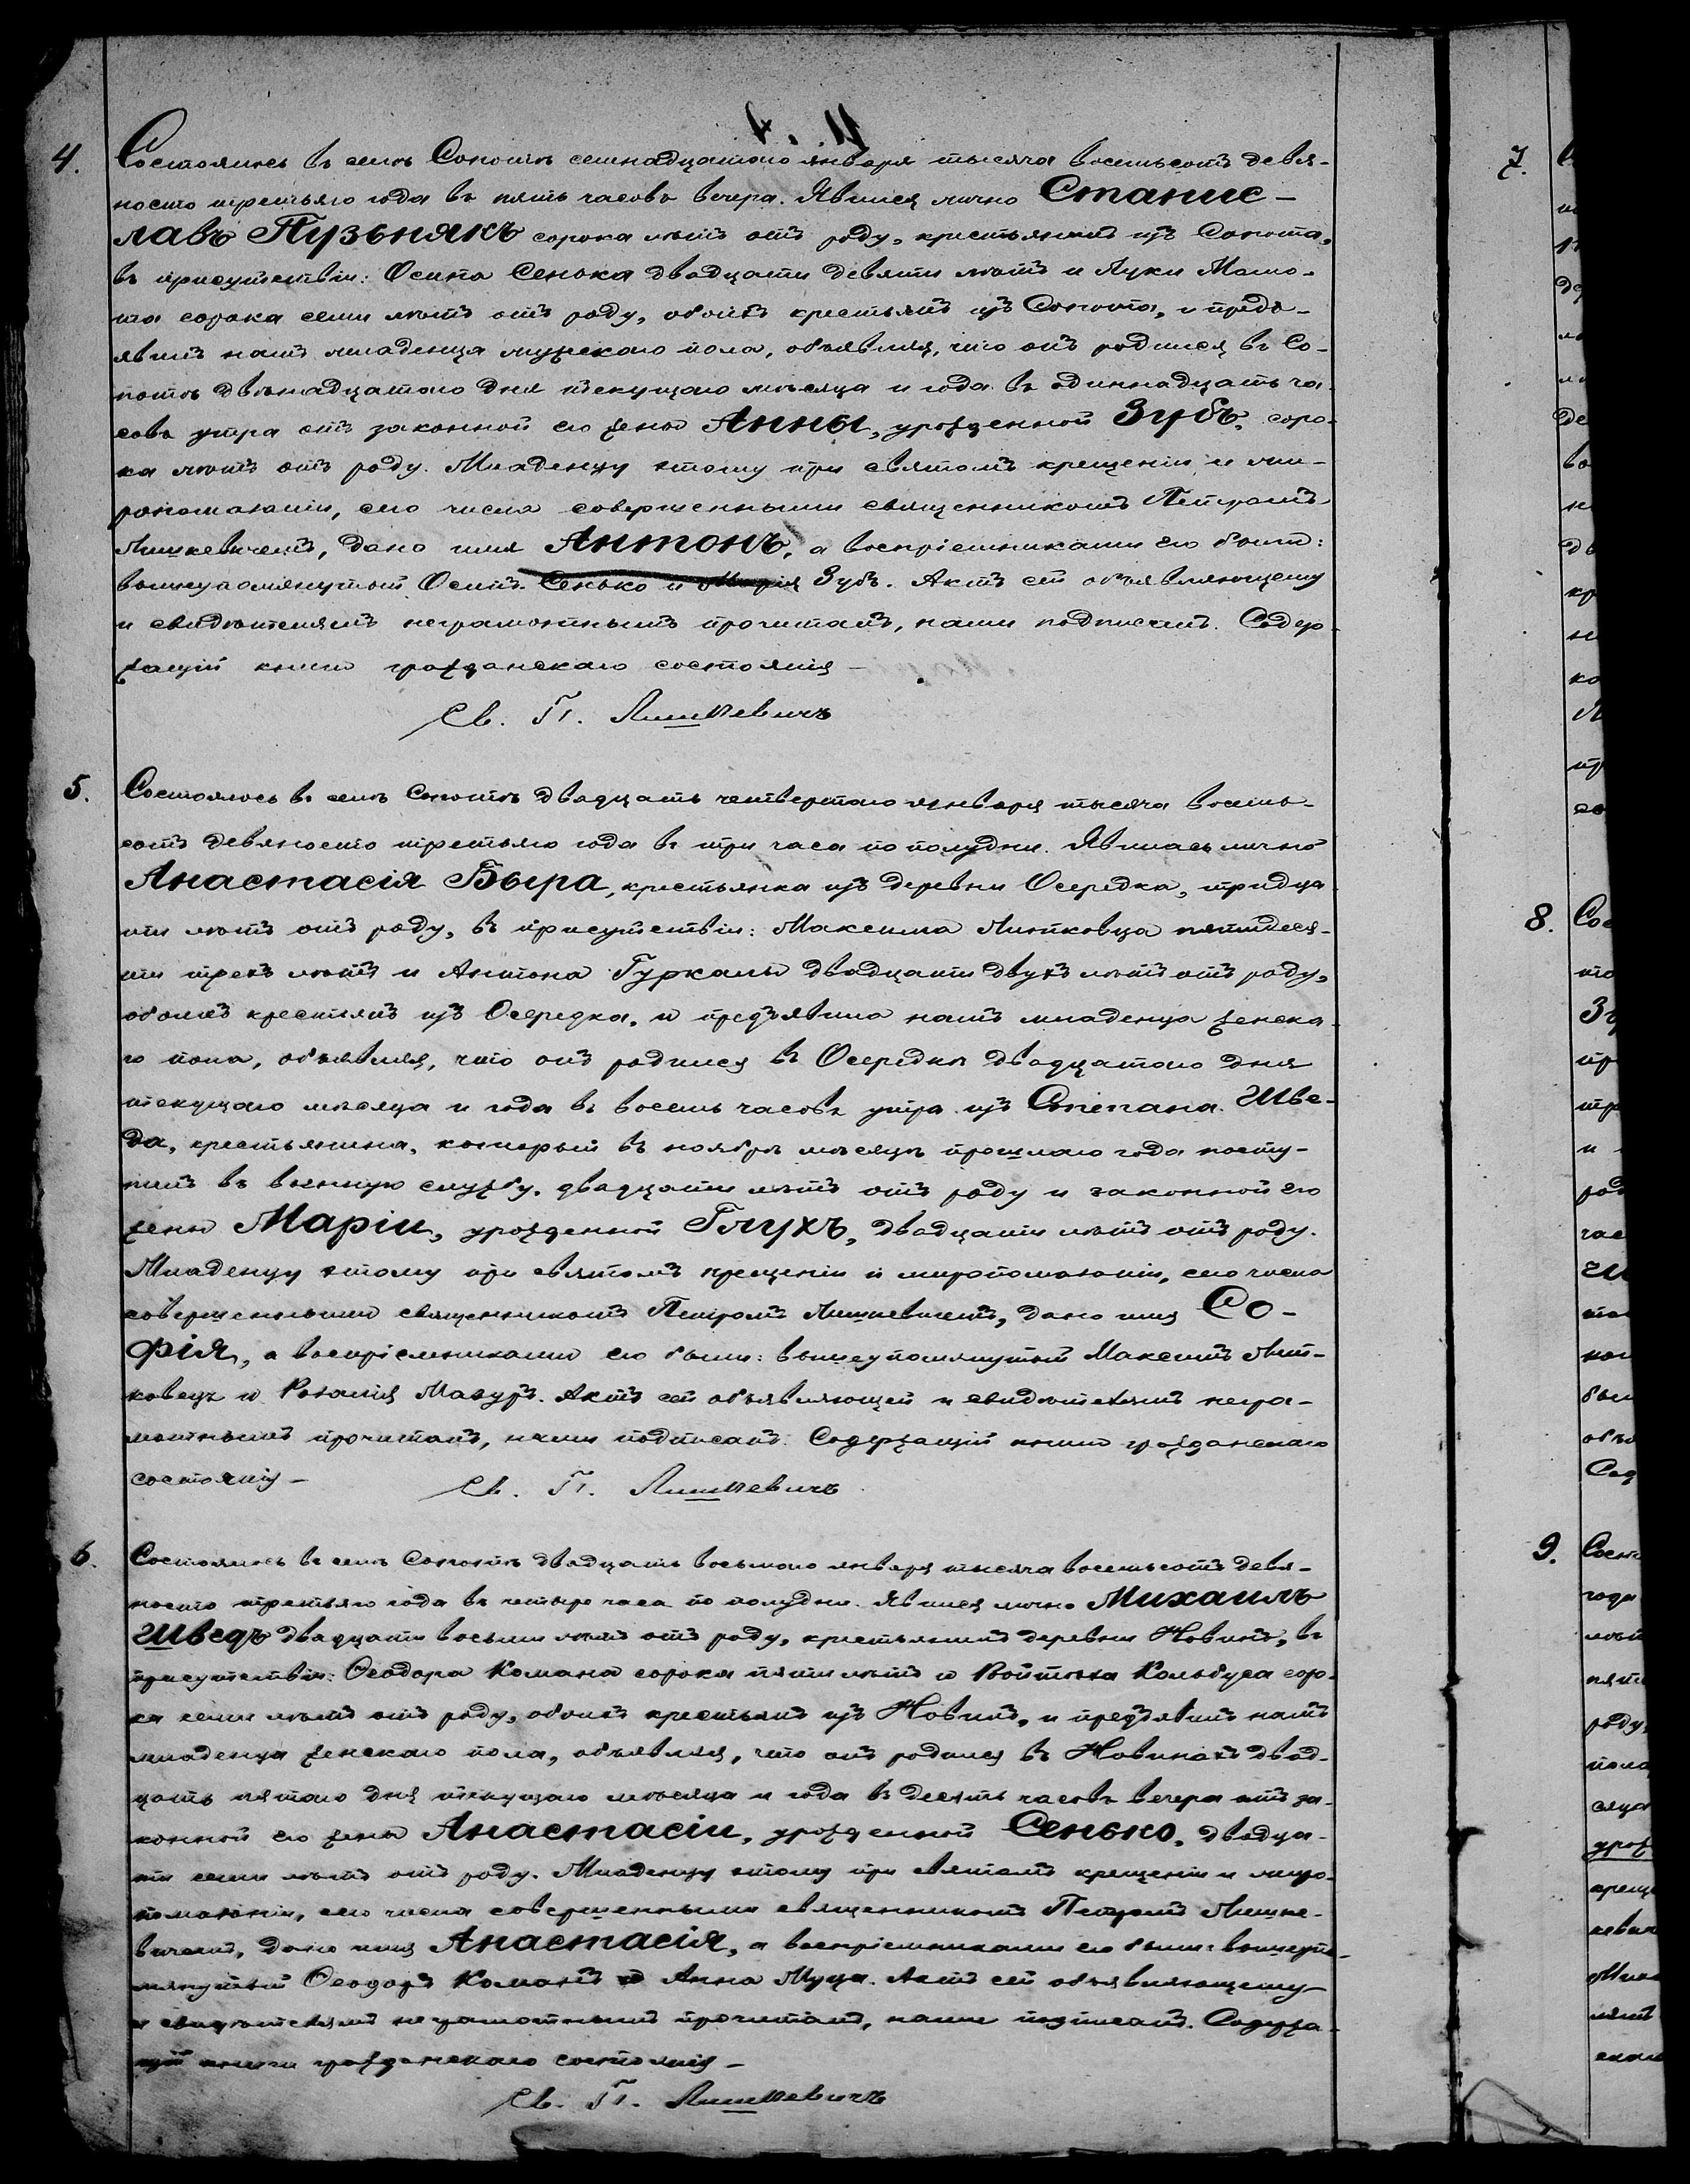 4.
Состоялось въ селѣ Сопотѣ семнадцатаго января тысяча восемьсотъ девя-
носто третьяго года въ пять часовъ вечера. Явился лично Станис-
лавъ Пузьнякъ сорока лѣтъ отъ роду, крестьянинъ изъ Сопота,
въ присутствіи: Осипа Сенька двадцати девяти лѣтъ и Луки
сорока семи лѣтъ отъ роду, обоихъ крестьянъ изъ Сопота, и предъ-
явилъ намъ младенца мужскаго пола, объявляя, что онъ родился въ Со-
потѣ двѣнадцатаго дня текущаго мѣсяца и года въ одиннадцать ча-
совъ утра отъ законной его жены Анны, урожденной Зубъ, соро-
ка лѣтъ отъ роду. Младенцу этому при святомъ крещеніи и ми-
ропомазаніи, сего числа совершенными священникомъ Петромъ
Лишкевичемъ, дано имя Антонъ, а воспріемниками его были:
вышеупомянутый Осипъ Сенько и Марія Зубъ. Актъ сей объявляющему
и свидѣтелямъ неграмотнымъ прочитанъ, нами подписанъ. Содер-
жащій книги гражданскаго состоянія –
Св. П. Лишкевичъ
5.
Состоялось въ селѣ Сопотѣ двадцать четвертаго января тысяча восемь-
сотъ девяносто третьяго года въ три часа по полудни. Явилась лично
Анастасія Быра, крестьянка изъ деревни Осередка, тридца-
ти лѣтъ отъ роду, въ присутствіи: Максима Литковца пятидеся-
ти трехъ лѣтъ и Антона Гуркалы двадцати двухъ лѣтъ отъ роду,
обоихъ крестьянъ изъ Осередка, и предъявила намъ младенца женска-
го пола, объявляя, что онъ родился въ Осередкѣ двадцатаго дня
текущаго мѣсяца и года въ восемь часовъ утра изъ Степана Шве-
да, крестьянина, который въ ноябрѣ мѣсяцѣ прошлаго года посту-
пилъ въ военную службу, двадцати лѣтъ отъ роду и законной его
жены Маріи, урожденной Глухъ, двадцати лѣтъ отъ роду.
Младенцу этому при святомъ крещеніи и миропомазаніи, сего числа
совершенными священникомъ Петромъ Лишкевичемъ, дано имя Со-
фія, а воспріемниками его были: вышеупомянутый Максимъ Лит-
ковецъ и Розалія Мазуръ. Актъ сей объявляющей и свидѣтелямъ негра-
мотнымъ прочитанъ, нами подписанъ. Содержащій книги гражданскаго
состоянія –
Св. П. Лишкевичъ
6.
Состоялось въ селѣ Сопотѣ двадцать восьмаго января тысяча восемьсотъ девя-
носто третьяго года въ четыре часа по полудни. Явился лично Михаилъ
Шведъ двадцати восьми лѣтъ отъ роду, крестьянинъ деревни Новинъ, въ
присутствіи: Ѳеодора Комана сорока пяти лѣтъ и Войтѣха Кольбуса соро-
ка семи лѣтъ отъ роду, обоихъ крестьянъ изъ Новинъ, и предъявилъ намъ
младенца женскаго пола, объявляя, что онъ родился въ Новинахъ двад-
цать пятаго дня текущаго мѣсяца и года въ десять часовъ вечера отъ за-
конной его жены Анастасіи, урожденной Сенько, двадца-
ти семи лѣтъ отъ роду. Младенцу этому при святомъ крещеніи и миро-
помазаніи, сего числа совершенными священникомъ Петромъ Лишке-
вичемъ, дано имя Анастасія, а воспріемниками его были: вышеупо-
мянутый Ѳеодоръ Команъ и Анна Муца. Актъ сей объявляющему
и свидѣтелямъ неграмотнымъ прочитанъ, нами подписанъ. Содержа-
щій книги гражданскаго состоянія –
Св. П. Лишкевичъ
7.
8.
Сос
9.
Сост
года